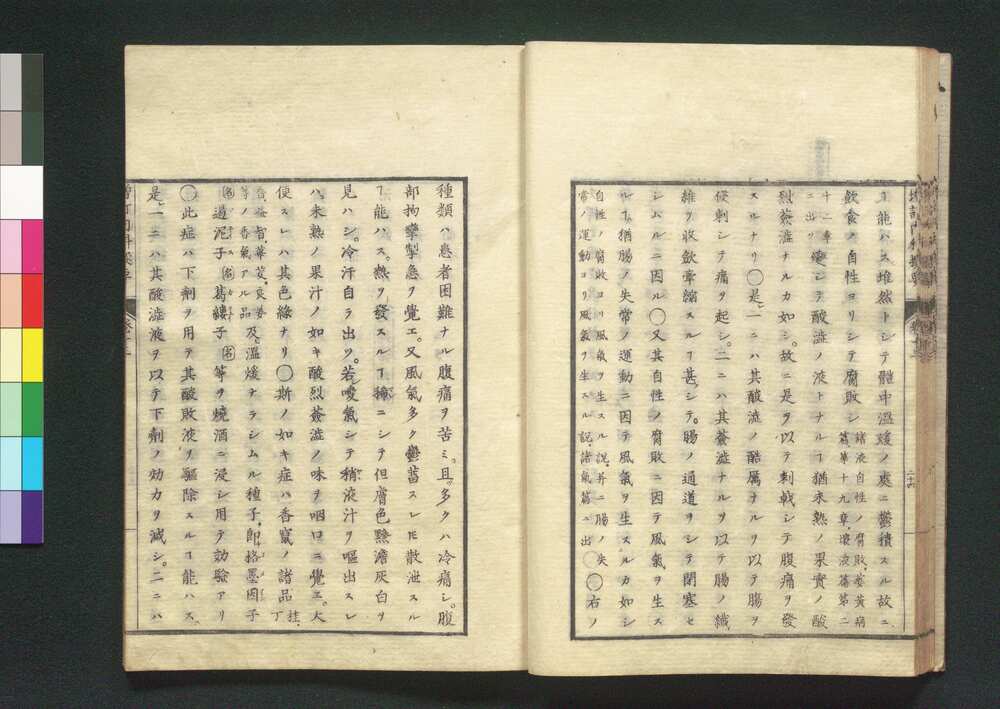 ヿ能ハス堆然トシテ體中溫煖ノ裏ニ鬱積スル故ニ
飲食ノ自性ヨリシテ腐敗シ
諸液自性ノ腐敗、萎黄病
篇第十九章、壊液篇第二
十二章
ニ出ツ
變シテ酸澁ノ液トナルヿ猶未熟ノ果實ノ酸
烈薟澁ナルカ如シ。故ニ是ヲ以テ刺戟シテ腹痛ヲ發
スルナリ◯是、一ニハ其酸澁ノ酷厲ナルヲ以テ腸ヲ
侵刺シテ痛ヲ起シ。二ニハ其薟澁ナルヲ以テ腸ノ纖
維ヲ收歛牽縮スルヿ甚シテ。腸ノ通道ヲシテ閉塞セ
シムルニ因ル◯又其自性ノ腐敗ニ因テ風氣ヲ生ス
ルヿ、猶腸ノ失常ノ運動ニ因テ風氣ヲ生スルカ如シ
自性ノ腐敗ヨリ風氣ヲ生スル説、并ニ腸ノ失
常ノ運動ヨリ風氣ヲ生スル説、諸氣篇ニ出
◯右ノ
種類ハ患者困難ナル腹痛ヲ苦ミ。且多クハ冷痛シ。腹
部拘攣掣急ヲ覺エ。又風氣多ク鬱蓄スレ𪜈散泄スル
ヿ能ハス。熱ヲ發スルヿ稀ニシテ但膚色黲澹灰白ヲ
見ハシ。冷汗自ラ出ツ。若噯氣シテ稍液汁ヲ嘔出スレ
ハ、未熟ノ果汁ノ如キ酸烈薟澁ノ味ヲ咽口ニ覺エ。大
便スレハ其色綠ナリ◯斯ノ如キ症ハ香竄ノ諸品
桂、丁
等ノ香氣アル品
及溫煖ナラシムル種子、即格墨因子
過泥子
葛縷子
等ヲ燒酒ニ浸シ用テ効驗アリ
◯此症ハ下劑ヲ用テ其酸敗液ヲ驅除スルヿ能ハス。
是、一ニハ其酸澁液ヲ以テ下劑ノ効力ヲ減シ。二ニハ